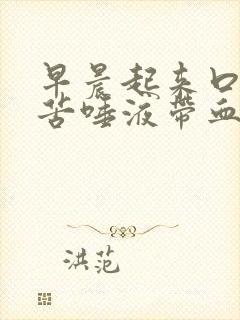 早晨起来口
苦唾液带血
洪范